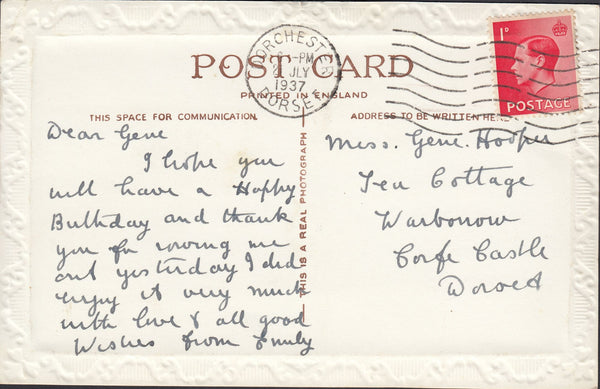 POST CARD
PRINTED IN ENGLAND
DORCHESTER
-PM
JLY
1937
DORSET
1D
POSTAGE
THIS SPACE FOR COMMUNICATION
ADDRESS TO BE WRITTEN HERE
THIS IS A REAL PHOTOGRAPH
Dear Gene
I hope you
will have a Happy
Birthday and thank
you for rowing me
out yesterday I did
enjoy it very much
with love & all good
Wishes from Emily
Miss. Gene. Hooper
Tea Cottage
Warbonow
Corfe Castle
Dorset